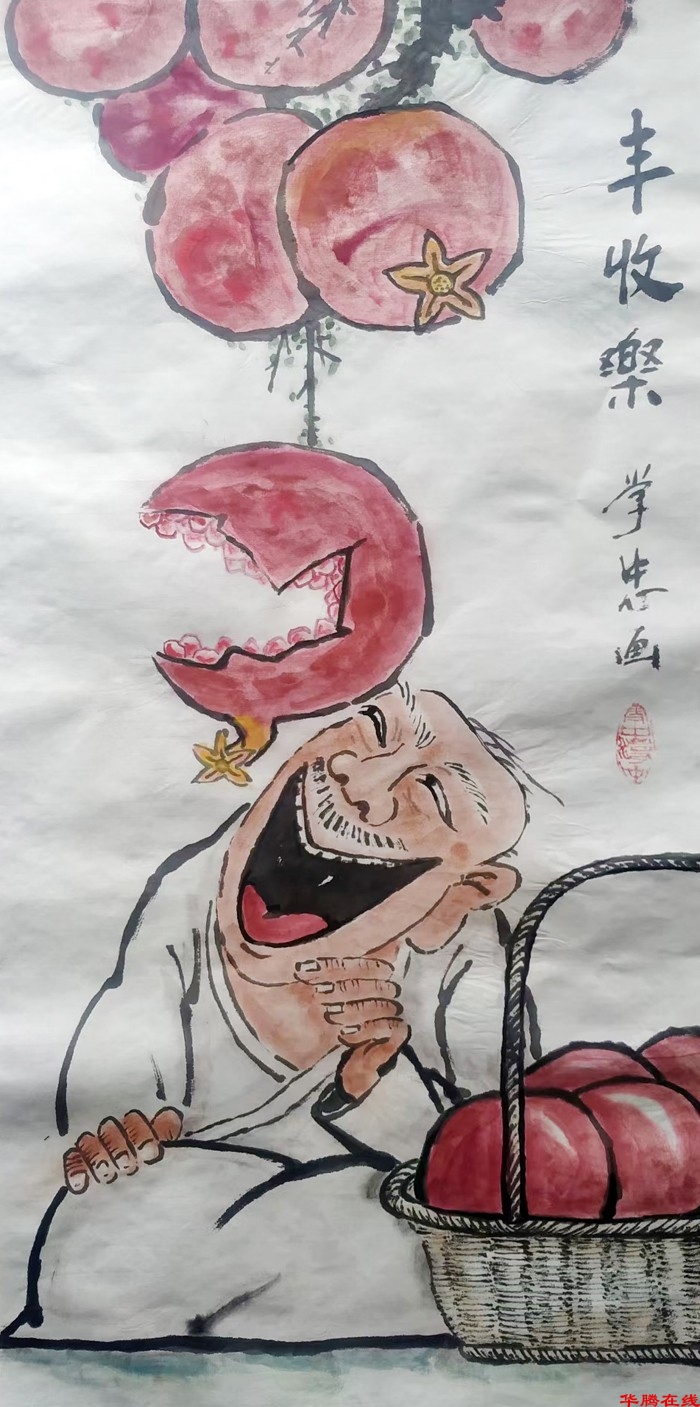 丰收樂
学忠画
华腾在线